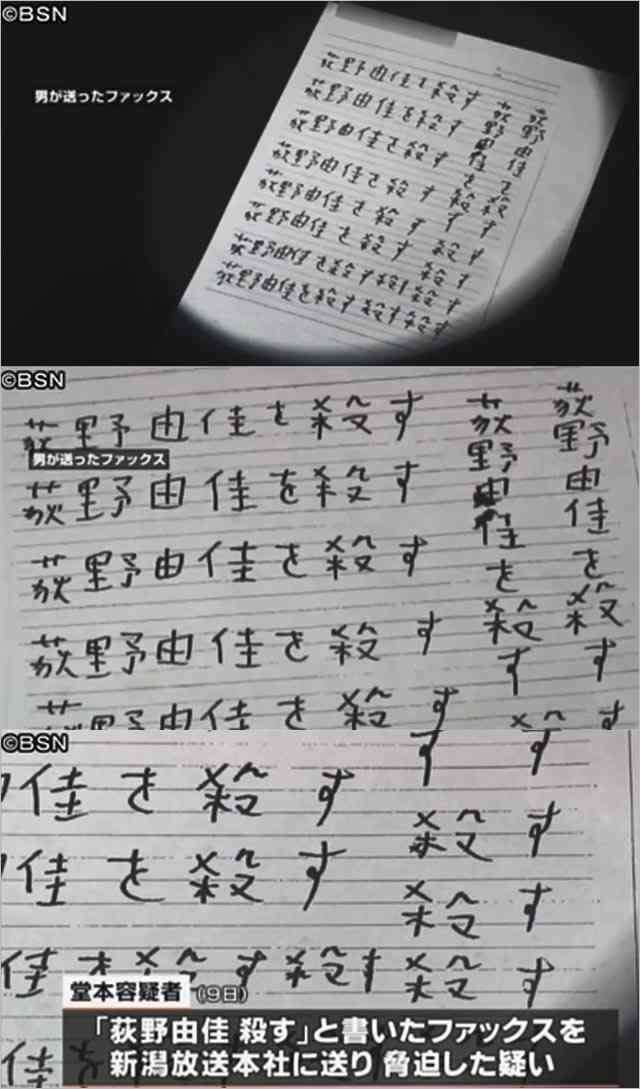 ©BSN
男が送ったファックス
荻野由佳を殺す
荻野由佳を殺す
荻野由佳を殺す
荻野由佳を殺す
荻野由佳を殺す
荻野由佳を殺す
荻野由佳を殺す殺す殺す
荻野由佳を殺す殺す殺す
荻野由佳を殺す
荻野由佳を殺す
殺す
殺す
©BSN
荻野由佳を殺す
男が送ったファックス
荻野由佳を殺す
荻野由佳を殺す
荻野由佳を殺す
荻野由佳を殺す
荻野由佳を殺す
荻野由佳を殺す
殺す
©BSN
佳を殺す
佳を殺す
佳を殺す殺す
佳
す
す
殺す
殺す
殺す
堂本容疑者(9日)
「荻野由佳 殺す」と書いたファックスを
新潟放送本社に送り 脅迫した疑い